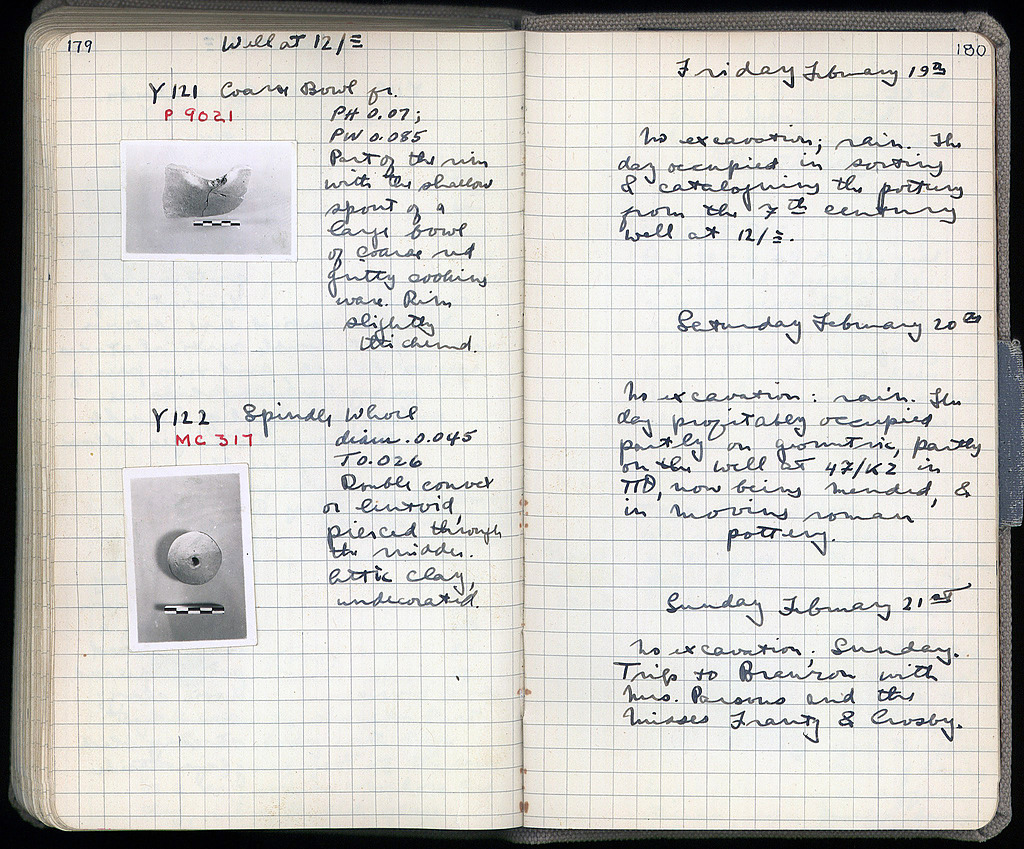 179
Well at 12/Ξ
Y 121 Coarse Bowl fr.
P 9021
PH 0.07;
PW 0.085
Part of the rim
with the shallow
spout of a
large bowl
of coarse red
gritty cooking
ware. Rim
slightly
thickened.
Y 122 Spindle Whorl
MC 317
diam. 0.045
T 0.026
Double convex
or lentoid,
pierced through
the middle.
Attic clay,
undecorated.
180
Friday February 19th
No excavation; rain. The
day occupied in sorting
& cataloguing the pottery
from the 7th century
well at 12/Ξ.
Saturday February 20th
No excavation: rain. The
day profitably occupied
partly on geometric, partly
on the well at 47/KZ in
ΠΘ, now being mended, &
in moving roman
pottery.
Sunday February 21st
No excavation; Sunday.
Trip to Brauron with
Mrs. Parsons and the
Misses Frantz & Crosby.